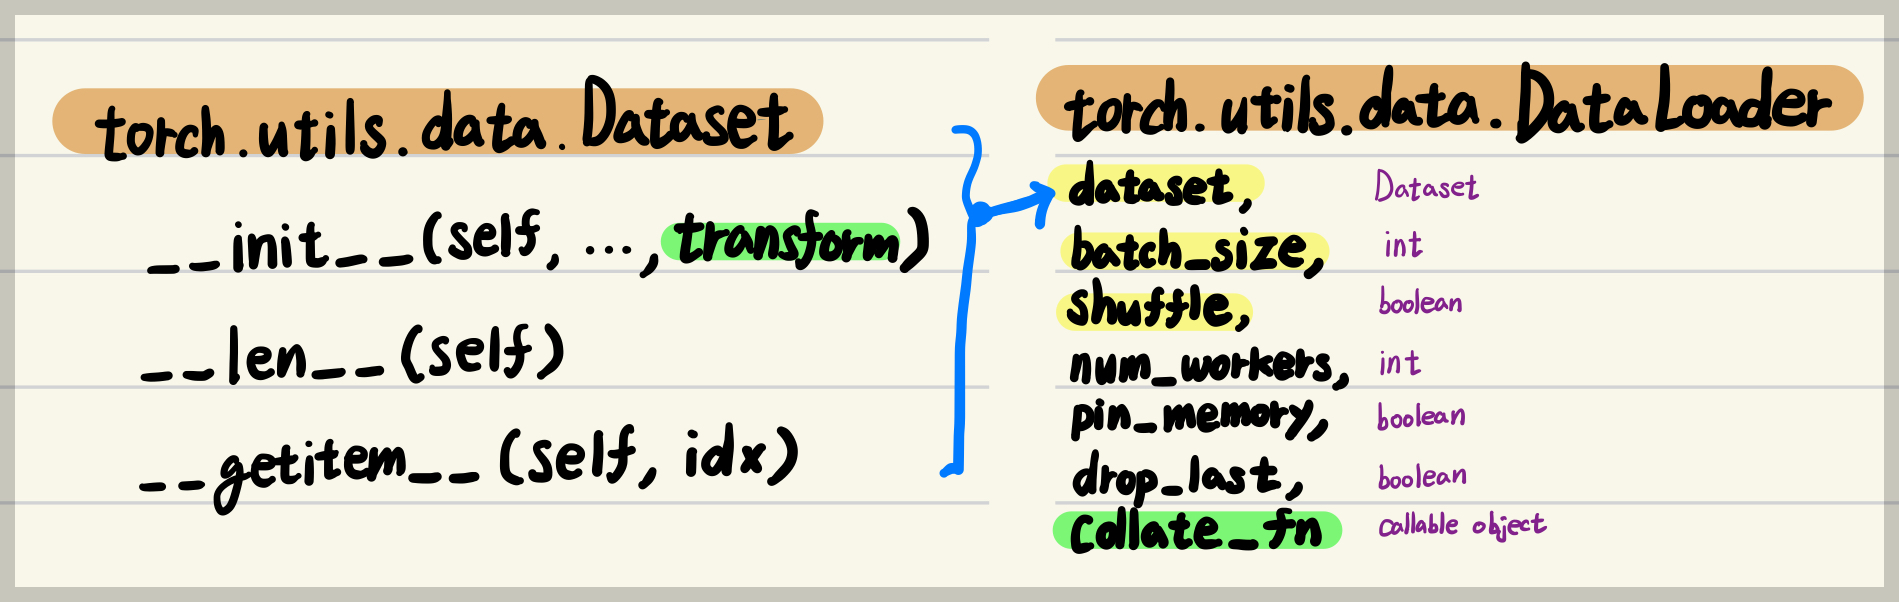 torch.utils.data.Dataset
__init__(self, ..., transform)
__len__(self)
__getitem__(self, idx)
torch.utils.data.DataLoader
dataset, Dataset
batch_size, int
shuffle, boolean
num_workers, int
pin_memory, boolean
drop_last, boolean
collate_fn callable object